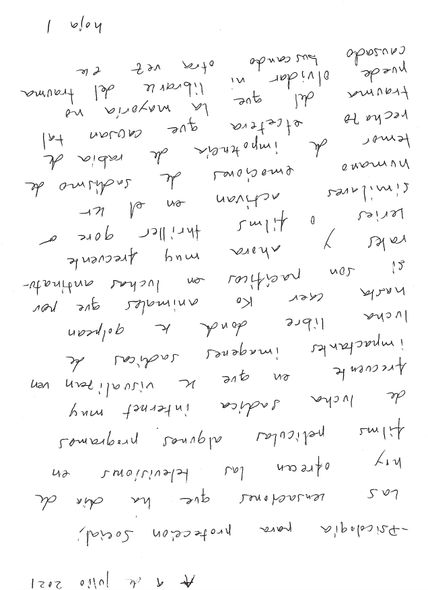 A 9 de julio 2021
-Psicologia para proteccion Social,
Las sensaciones que ha dia de
hoy ofrecen las televisiones en
films peliculas algunos programas
de lucha sadica internet muy
frecuente en que se visualizan ven
impactantes imagenes sadicas de
lucha libre donde se golpean
hasta caer Ko animales que por
si son pacificos en luchas antinatu-
rales y ahora muy frecuente
series o films thriller gore o
similares activan en el ser
humano emociones de sadismo de
temor de impotencia de rabia de
rechazo etcetera que causan tal
trauma del que la mayoria no
puede olvidar ni librarse del trauma
causado buscando otra vez
hoja 1